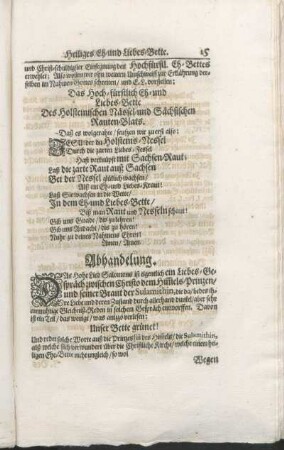 Heiliges Eh-und Liebes-Bette. 15
und Christ-schuldigster Einsegnung des Hochfürstl. Eh-Bettes
erwehlet: Als wollen wir ohn weitern Anschweiff zur Erklährung der-
selben im Nahmen Gottes schreiten, und E. L. vorstellen:
Das Hoch-fürstlich Eh-und
Liebes-Bette
Des Holsteinischen Nässel-und Sächsischen
Rauten-Blats.
Daß es wolgerahte/ seufzen wir zu erst also:
JESU der du Holsteins-Nessel
Durch die zarten Liebes-Fessel
Hast verknüpft mit Sachsen-Raut;
Laß die zarte Raut auß Sachsen
Bey der Nessel glücklich wachsen/
Als ein Eh-und Liebes-Kraut!
Laß Sie wachsen in die Wette/
In dem Eh-und Liebes-Bette/
Biß man Raut und Nesseln schaut!
Gib uns Gnade/ die zu lehren!
Gib uns Andacht/ die zu hören!
Nuhr zu deines Nahmens Ehren!
Amen/ Amen.
Abhandelung.
DAs Hohe Lied Salomonis ist eigentlich ein Liebes-Ge-
spräch zwischen Christo dem Himels-Prinzen/
und seiner Braut der Sulamithin, die da/ beides ih-
rer Liebe und deren Zustand durch allerhand dunkle/ aber sehr
anmuhtige Gleichniß-Reden in solchem Gespräch entworffen. Davon
ist ein Teil/ das wenige/ was anizzo verlesen:
Unser Bette grünet!
Und reden solche Worte auß die Prinzessin des Himels/ die Sulamithin,
auß welche sich verwundert über die Christliche Kirche/ welche einem hei-
ligen Ehe-Bette nicht ungleich/ so wol
Wegen